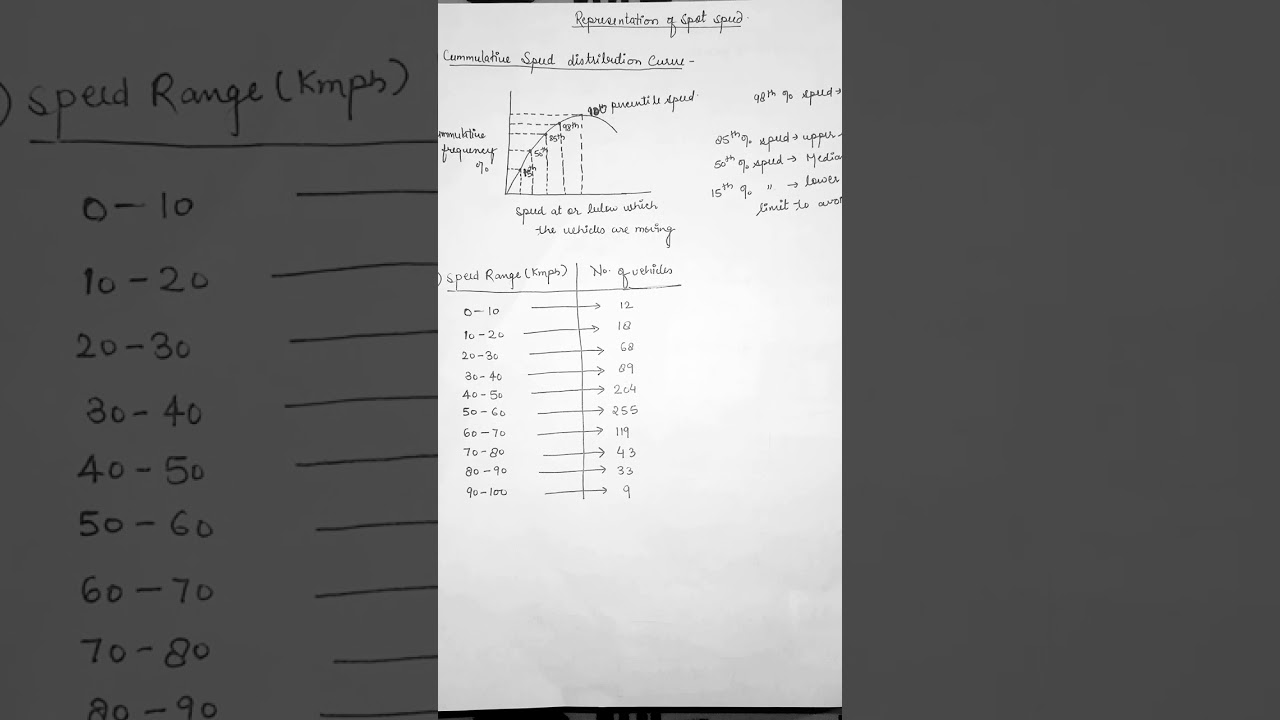 Representation of spot speed.
Cummulative Speed distribution Curve -
percentile speed.
98th
85th
50th
15th
mmulative
frequency
%
Speed at or below which
the vehicles are moving
98th % speed →
85th % speed → upper -
50th % speed → Media
15th % " → lower
limit to avo
) Speed Range (Kmph) No. of vehicles
0-10 → 12
10-20 → 18
20-30 → 68
30-40 → 89
40-50 → 204
50-60 → 255
60-70 → 119
70-80 → 43
80-90 → 33
90-100 → 9
) Speed Range (Kmph)
0-10
10-20
20-30
30-40
40-50
50-60
60-70
70-80
80-90